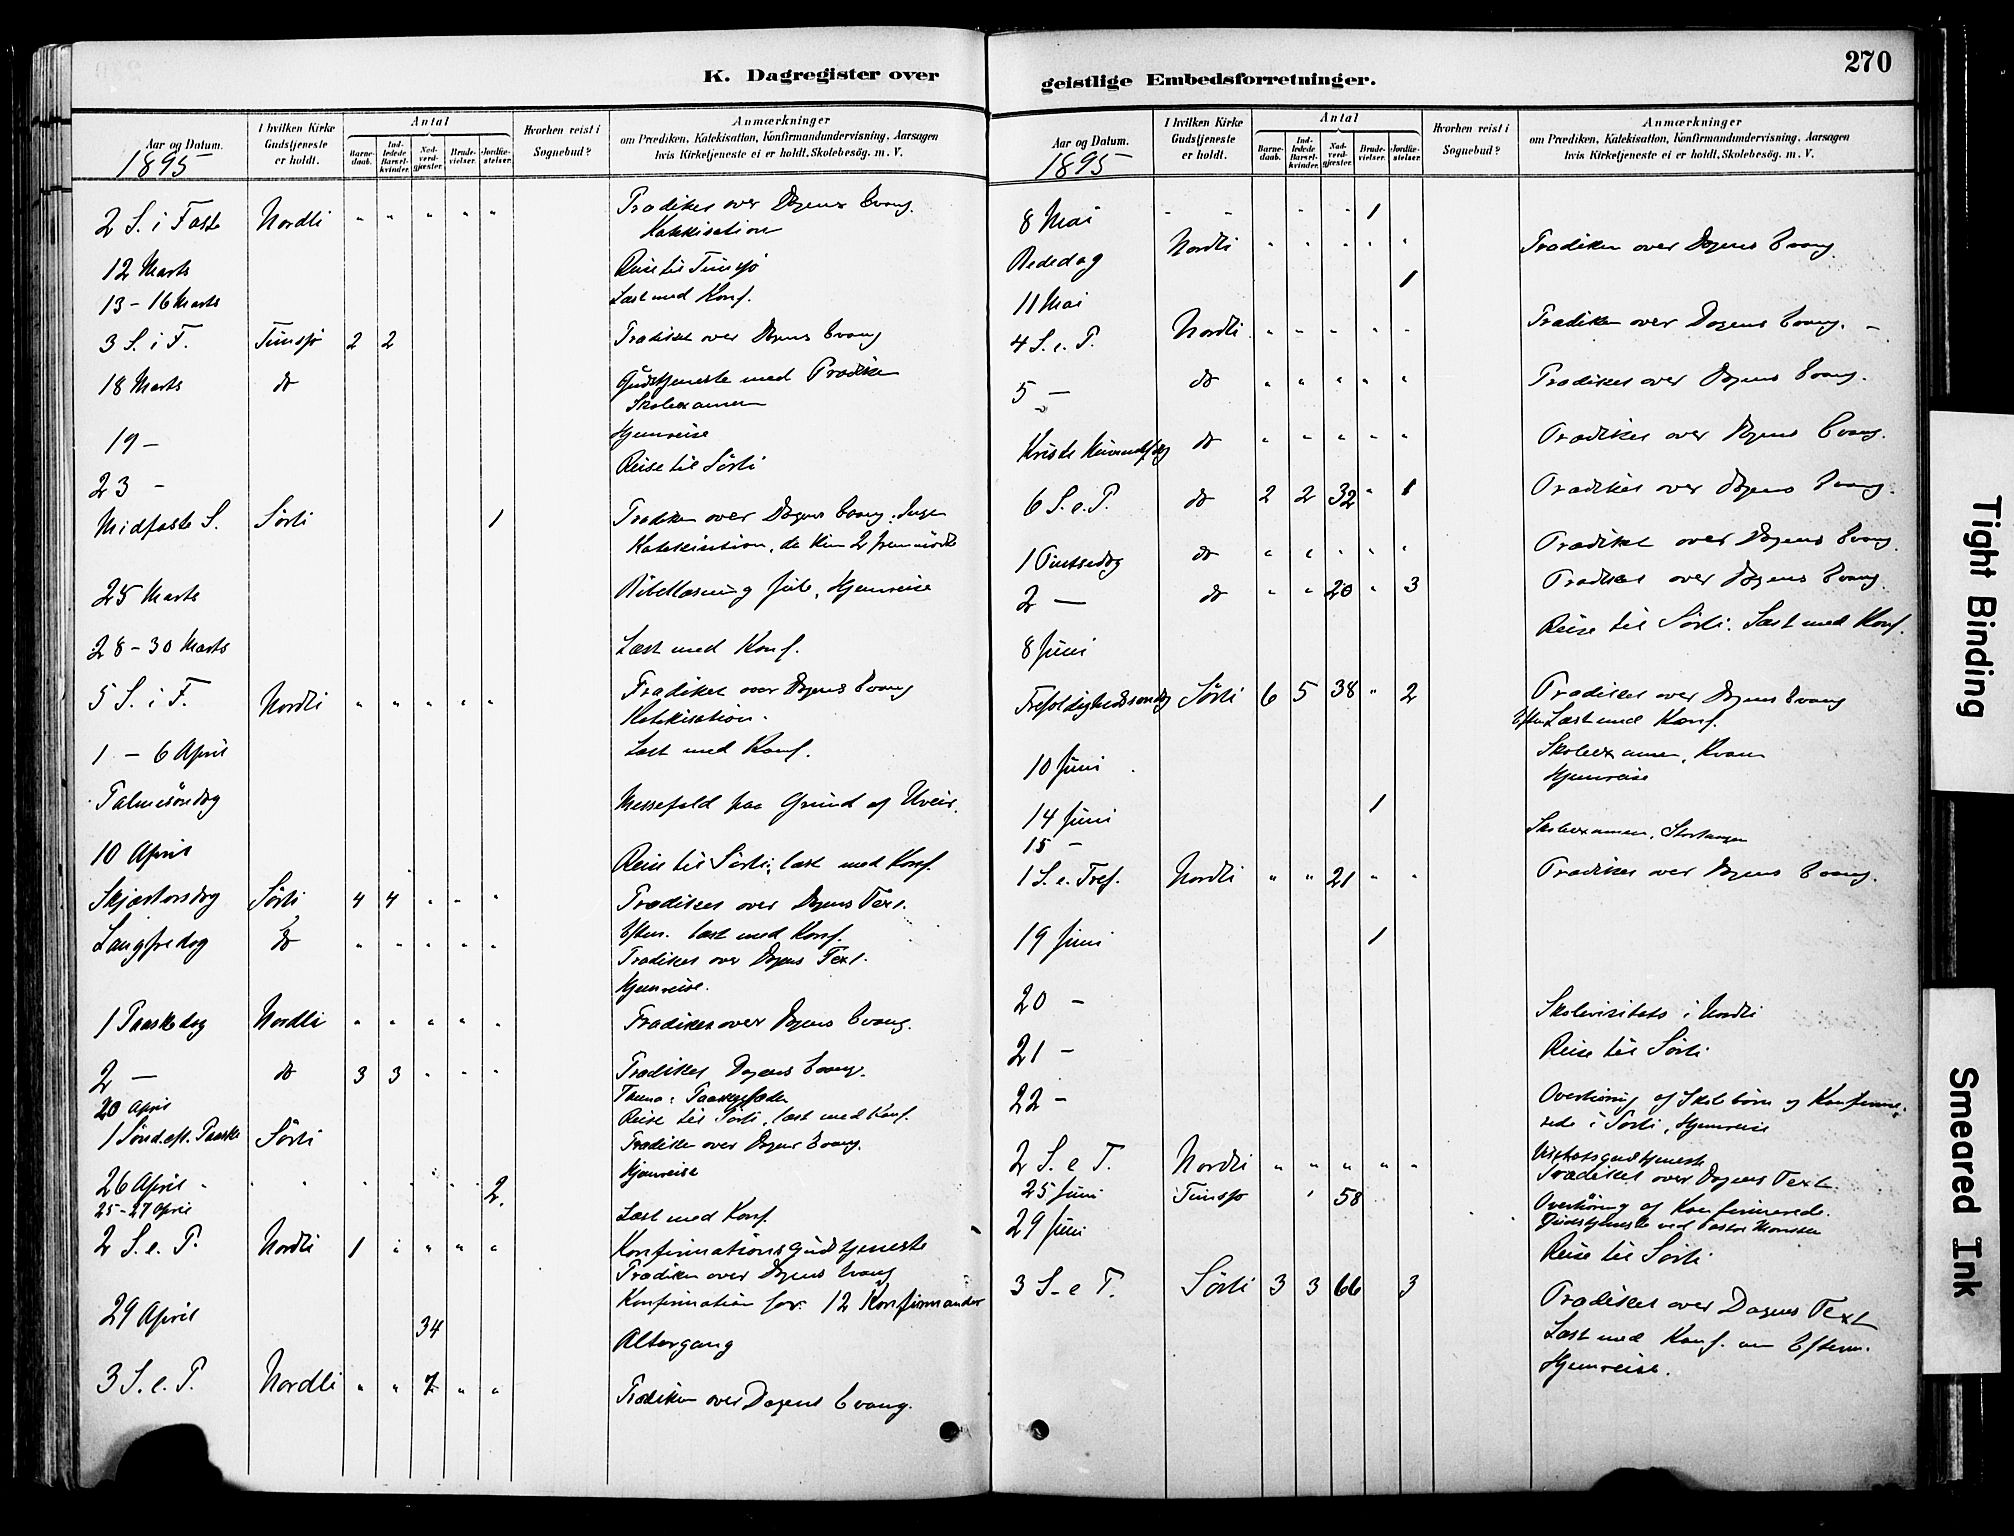 K. Dagregister over
Aar og Datum.
I hvilken Kirke Gudstjeneste er holdt.
Antal
Barnedaab.
Indledede Barselkvinder.
Nadverdgjæster.
Brudevielser.
Jordfæstelser.
Hvorhen reist i Sognebud?
Anmærkninger
om Prædiken, Katekisation, Konfirmandundervisning, Aarsagen
hvis Kirketjeneste ei er holdt. Skolebesög. m. V.
1895
2 S. i Faste Nordli " " " " " Prædiket over Dagens Evang.
Katekisation
12 Marts Reise til Tunsjø
13 - 16 Marts Læst med Konf.
3 S. i F. Tunsjø 2 2 Prædiket over Dagens Evang
18 Marts do Gudstjeneste med Prædiken
Skoleexamen
19 - Hjemreise
23 - Reise til Sørli
Midfaste S. Sørli 1 Prædiken over Dagens Evang. Ingen
Katekisation, da kun 2 fremmødte
25 Marts Bibellæsning Hjemreise
28 - 30 Marts Læst med Konf.
5 S. i F. Nordli " " " " " Prædiket over Dagens Evang
Katekisation.
1 - 6 April Læst med Konf.
Palmesöndag Messefald paa Grund af Uveir.
10 April Reise til Sørli; læst med Konf.
Skjærtorsdag Sørli 4 4 " " " Prædiket over Dagens Text.
Efterm. læst med Konf.
Langfredag do " " " " " Prædiket over Dagens Text.
Hjemreise.
1 Paaskedag Nordli " " " " " Prædiken over Dagens Evang.
2 — do 3 3 " " " Prædiket Dagens Evang.
Thema:
20 April Reise til Sørli, læst med Konf.
1 Sönd. eft. Paaske Sørli Prædiken over Dagens Evang.
Hjemreise
26 April " " " " " " 2
25-27 April Læst med Konf.
2 S. e. P. Nordli 1 " " " " Konfirmationsgudstjeneste
Prædiken over Dagens Evang
Konfirmation for 12 Konfirmander
29 April 34 Altergang
3 S. e. P. Nordli " " 7 " " Prædiken over Dagens Evang.
geistlige Embedsforretninger.
270
Aar og Datum.
I hvilken Kirke Gudstjeneste er holdt.
Antal
Barnedaab.
Indledede Barselkvinder.
Nadverdgjæster.
Brudevielser.
Jordfæstelser.
Hvorhen reist i Sognebud?
Anmærkninger
om Prædiken, Katekisation, Konfirmandundervisning, Aarsagen
hvis Kirketjeneste ei er holdt. Skolebesög. m. V.
1895
8 Mai " " " " 1
Bededag Nordli " " " " " Prædiken over Dagens Evang.
11 Mai 1
4 S. e. P. Nordli " " " " " Prædiken over Dagens Evang. -
5 — do " " " " " Prædiket over Dagens Evang.
Kristi Himmelfdag do " " " " " Prædiket over Dagens Evang.
6 S. e. P. do 2 2 32 " 1 Prædiket over Dagens Evang.
1 Pintsedag do " " " " " Prædiket over Dagens Evang.
2 — do " " 20 " 3 Prædiket over Dagens Evang.
8 Juni Reise til Sørli. Læst med Konf.
Trefoldighedssondag Sørli 6 5 38 " 2 Prædiket over Dagens Evang
Efterm Læst med Konf.
10 Juni Skoleexamen, Kvam
Hjemreise
14 Juni 1
15 - Skoleexamen,
1 S. e. Tref. Nordli " " 21 " " Prædiket over Dagens Evang.
19 Juni 1
20 - Skolevisitats i Nordli
21 - Reise til Sørli
22 - Overhöring af Skolebörn og Konfirme-
rede i Sørli, Hjemreise
2 S. e T. Nordli " " " " " Visitatsgudstjeneste
Prædiket over Dagens Text.
25 Juni Tunsjø " 58 Overhöring af Konfirmerede.
Gudstjeneste ved Pastor
29 Juni Reise til Sørli
3 S. e T. Sørli 3 3 66 3 Prædiket over Dagens Text
Læst med Konf. om Efterm.
Hjemreise.
Tight Binding
Smeared Ink